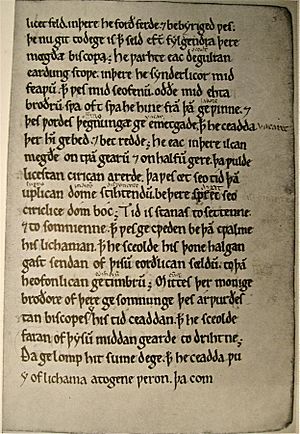 licetfeld. inþere he forðferde. ⁊ bebyriged ƿes.
þe nu git to dege is ꝥ seld eft fylgendra þere
megðe biscopa; he þa het eac degulran
eardung stoƿe. inþere he synderlicor mid
feaū. ꝥ ƿes mid seofenū. oððe mid ehta
broðrū sƿa oft sƿa he hine frā þā geƿinne. ⁊
þes ƿordes þegnunga ge emetgade. ꝥ he ceadda
þer hī gebed ⁊ bec redde; he eac inþere ilcan
megðe on tƿā gearū ⁊ on halfū gere. þa ƿulde
cirican arerde. þa ƿes seo tid þā
uplican dome stihtendū. beþere sprec seo
ciriclice dom boc; Tid is stanas to settenne.
⁊ to somnienne. ꝥ ƿes ge cƿeden be þā cƿalme
his lichaman. ꝥ he sceolde his þone halgan
gast sendan of þisū eorðlican seldū. to þā
heofonlican getimbrū; Mittes þer monige
broðore of þere ge somnunge þes arƿurðes
tan biscopes his tid ceaddan. ꝥ he sceolde
faran of þysū middan gearde to drihtne;
Ða gelomp hit sume dege. ꝥ he ceadda ƿu
y of lichama atogene ƿeron. þa com